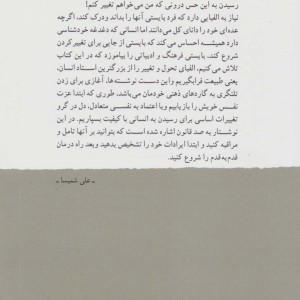 رسیدن به این حس درونی که من می خواهم تغییر کنم!
نیاز به الفبایی دارد که فرد بایستی آنها را بداند ودرک کند، اگرچه
عده‌ای خود را دانای کل می‌دانند اما انسانی که دغدغه خودشناسی
دارد همیشه احساس می‌کند که بایستی از جایی برای تغییر کردن
شروع کند. بایستی فرهنگ و ادبیاتی را بیاموزد که در این کتاب
تلاش می‌کنیم، الفبای تحول و تغییر را از بزرگترین استاد انسان،
یعنی طبیعت فرابگیریم و این دست نوشته‌ها، آغازی برای زدن
تلنگری به گاردهای ذهنی خودمان می‌باشد. طوری که ابتدا عزت
نفس خویش را بازیابیم وبا اعتماد به نفسی متعادل، دل در گرو
تغییرات اساسی برای رسیدن به انسانی با کیفیت بسپاریم. در این
نوشتار به صد قانون اشاره شده است که بتوانید بر آنها تامل و
مراقبه کنید و ابتدا ایرادات خود را تشخیص بدهید وبعد راه درمان
قدم‌به‌قدم را شروع کنید.
ـ علی شمیسا ـ